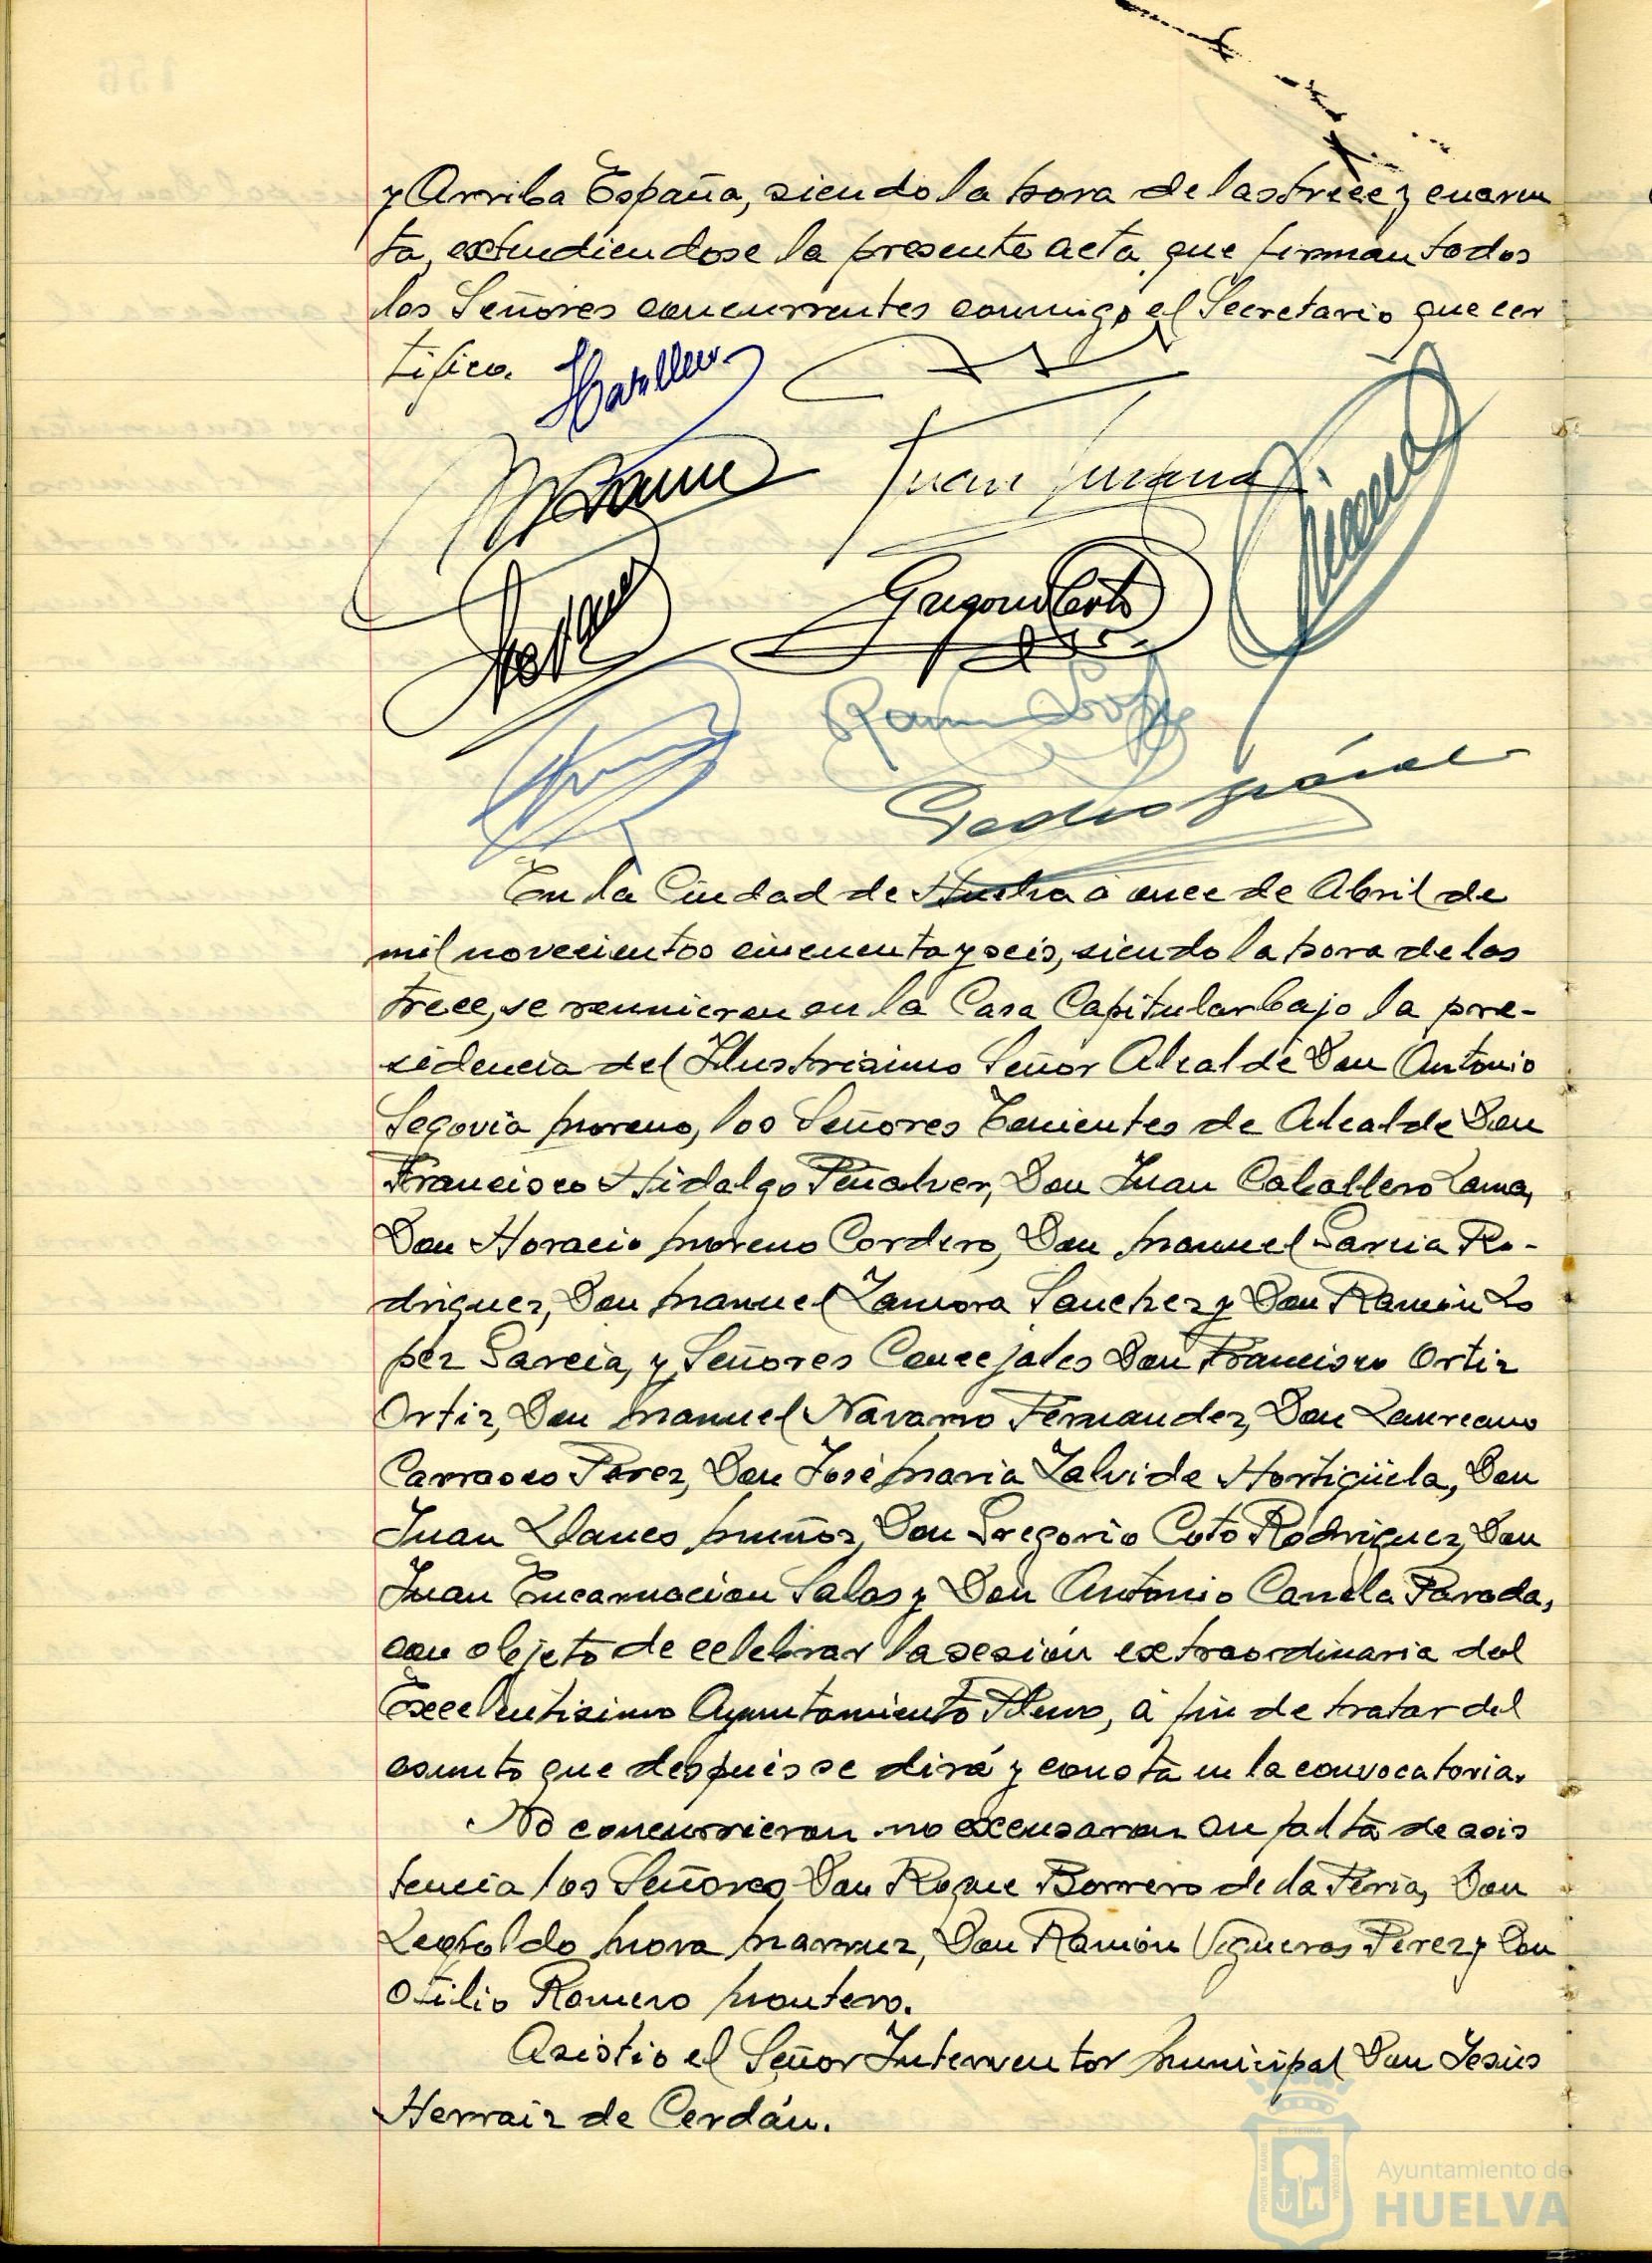 y Arriba España, siendo la hora de las trece y cuaren
ta, extendiendose la presente acta que firman todos
los Señores concurrentes conmigo el Secretario que cer
tifico.
Juan
Gregorio Coto
Ramon Lopez
Pedro
En la Ciudad de Huelva a once de Abril de
mil novecientos cincuenta y seis, siendo la hora de las
trece, se reunieron en la Casa Capitular bajo la pre-
sidencia del Ilustrisimo Señor Alcalde Don Antonio
Segovia Moreno, los Señores Tenientes de Alcalde Don
Francisco Hidalgo Peñalver, Don Juan Caballero Lama,
Don Horacio Moreno Cordero, Don Manuel Garcia Ro-
driguez, Don Manuel Zamora Sanchez y Don Ramón Lo
pez Garcia, y Señores Concejales Don Francisco Ortiz
Ortiz, Don Manuel Navarro Fernandez, Don Laureano
Carrasco Perez, Don José Maria Zalvide Hortigüela, Don
Juan Llanes Muñoz, Don Gregorio Coto Rodriguez, Don
Juan Encarnacion Salas y Don Antonio Canela Parada,
con objeto de celebrar la sesión extraordinaria del
Excelentisimo Ayuntamiento Pleno, a fin de tratar del
asunto que después se dirá y consta en la convocatoria.
No concurrieron no excusaron su falta de asis
tencia los Señores Don Roque Borrero de la Feria, Don
Leopoldo Mora Don Ramón Vigueras Perez y Don
Otilio Romero Montero.
Asistio el Señor Interventor Municipal Don Jesús
Herraiz de Cerdán.
Ayuntamiento de
HUELVA